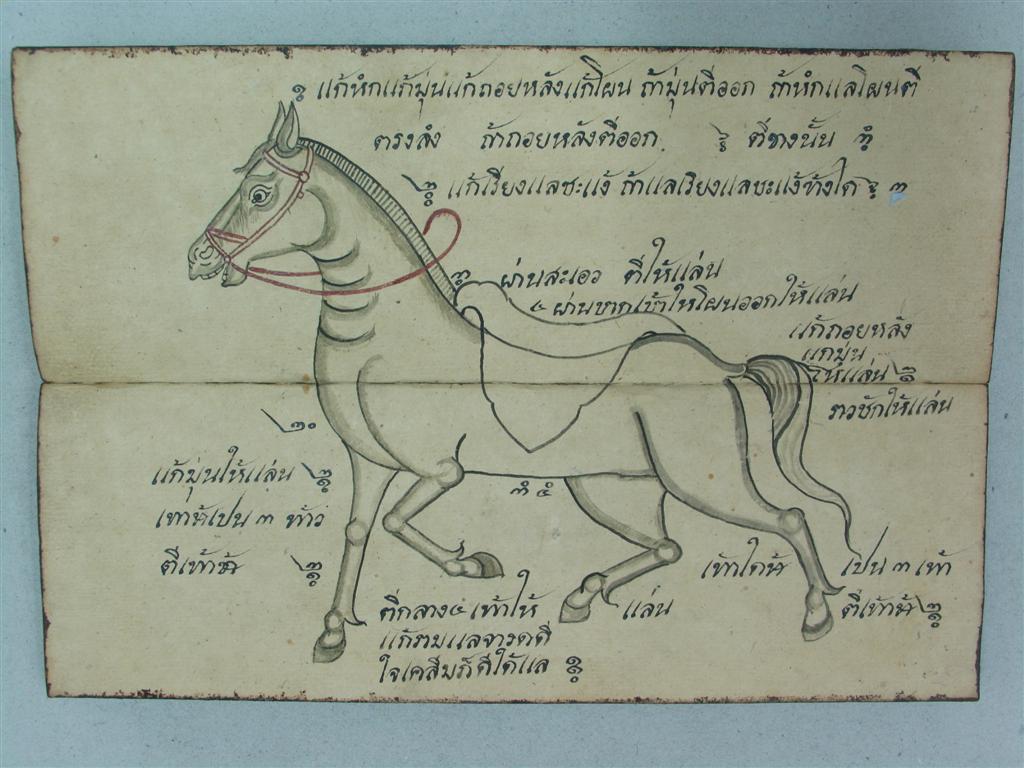 แก้หํกแก้มุ่นแก้ถอยหลังแก้โผน ถ้ามุ่นตีออก ถ้าหํกแลโผนตี
ตรงลํง ถ้าถอยหลังตีออก ตีชางนั้น
แก้เรียงแลชะแง้ ถ้าแลเรียงแลชะแง้ข้างใด ๓
ผ่านสะเอว ตีให้แล่น
๔ ผ่านชากเข้าให้โผนออกให้แล่น
แก้ถอยหลัง
แกมุ่น
ให้แล่น
ราวชักให้แล่น
แก้มุ่นให้แล่น
เทาน้เปน ๓ ท้าว
ตีเท้าน้
๔
เท้าใดน้ เปน ๓ เท้า
ตีกลาง ๔ เท้าให้ แล่น ตีเท้าน้
แก้รามแลจารดตี
ใจเคสิมก็ตีใด้แล